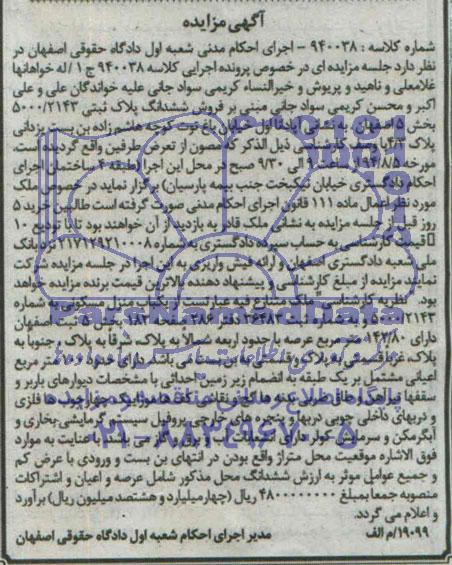 آگهی مزایده
شماره کلاسه : ۹۴۰۰۳۸ - اجرای احکام مدنی شعبه اول دادگاه حقوقی اصفهان در
نظر دارد جلسه مزایده ای در خصوص پرونده اجرایی کلاسه ۹۴۰۰۳۸ ج ۱ / له خواهانها
غلامعلی و ناهید و پریوش و خیرالنساء کریمی سواد جانی علیه خواندگان علی و علی
اکبر و محسن کریمی سواد جانی مبنی بر فروش ششدانگ پلاک ثبتی ۵۰۰۰/۲۱۴۳
بخش ۵ اصفهان به نشانی اول خیابان باغ توت کوچه هاشم زاده بن بست یزدانی
پلاک با وصف کارشناسی ذیل الذکر که مصون از تعرض طرفین واقع گردیده است،
مورخه ۹۴/۸/۵ ساعت ۹ الی ۹/۳۰ صبح در محل این اجرا (طبقه ساختمان اجرای
احکام دادگستری خیابان نیکبخت جنب بیمه پارسیان) برگزار نماید در خصوص ملک
مورد نظر اعمال ماده ۱۱۱ قانون اجرای احکام مدنی صورت گرفته است طالبین خرید ۵
روز قبل از جلسه مزایده به نشانی ملک قادر به بازدید از آن خواهند بود تا با تودیع ۱۰
٪ قیمت کارشناسی به حساب سپرده دادگستری به شماره ۲۱۷۱۲۹۲۱۰۰۰۸ نزد بانک
ملی شعبه دادگستری اصفهان و ارائه فیش واریزی به این اجرا در جلسه مزایده شرکت
نمایند مزایده از مبلغ کارشناسی و پیشنهاد دهنده بالاترین قیمت برنده مزایده خواهد
بود. نظریه کارشناسی: ملک مشاع فیه عبارتست از یکباب منزل مسکونی به شماره
دفتر ۳۸۶ صفحه ۱۸۳ بخش ۵ ثبت اصفهان
دارای ۱۴۲/۸۰ متر مربع عرصه با حدود اربعه شمالا به پلاک، شرقا به پلاک و جنوبا به
پلاک، غربا قسمتی به پلاک و قسمتی به بن بست می باشد دارای حدود متر مربع
اعیانی مشتمل بر یک طبقه به انضمام زیر زمین احداثی با مشخصات دیوارهای باربر و
سقفها
و دربهای داخلی چوبی دربها و پنجره های خارجی پروفیل سیستم گرمایشی بخاری و
آبگرمکن و سرمایش کولر دارای انشعابات آب و برق و گاز می باشد با عنایت به موارد
فوق الاشاره موقعیت محل متراژ واقع بودن در انتهای بن بست و ورودی با عرض کم
و جمیع عوامل موثر به ارزش ششدانگ محل مذکور شامل عرصه و اعیان و اشتراکات
منصوبه جمعا بمبلغ ۴۸۰۰۰۰۰۰۰۰ ریال (چهار میلیارد و هشتصد میلیون ریال) برآورد
و اعلام می گردد.
۱۹۰۹۹/م الف
مدیر اجرای احکام شعبه اول دادگاه حقوقی اصفهان
ParsNamadData
۰۲۱-۸۸۳۴۹۶۷۰-۵